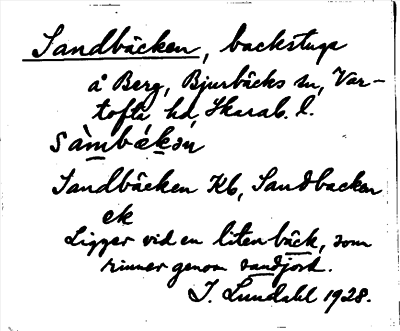 Sandbäcken, backstuga
å Berg, Bjurbäcks sn, Var-
tofta hd, Skarab. l.
sàmbǽkən
Sandbäcken Kb, Sandbacken
ek
Ligger vid en liten bäck, som
rinner genom sandjord.
I. Lundahl 1928.